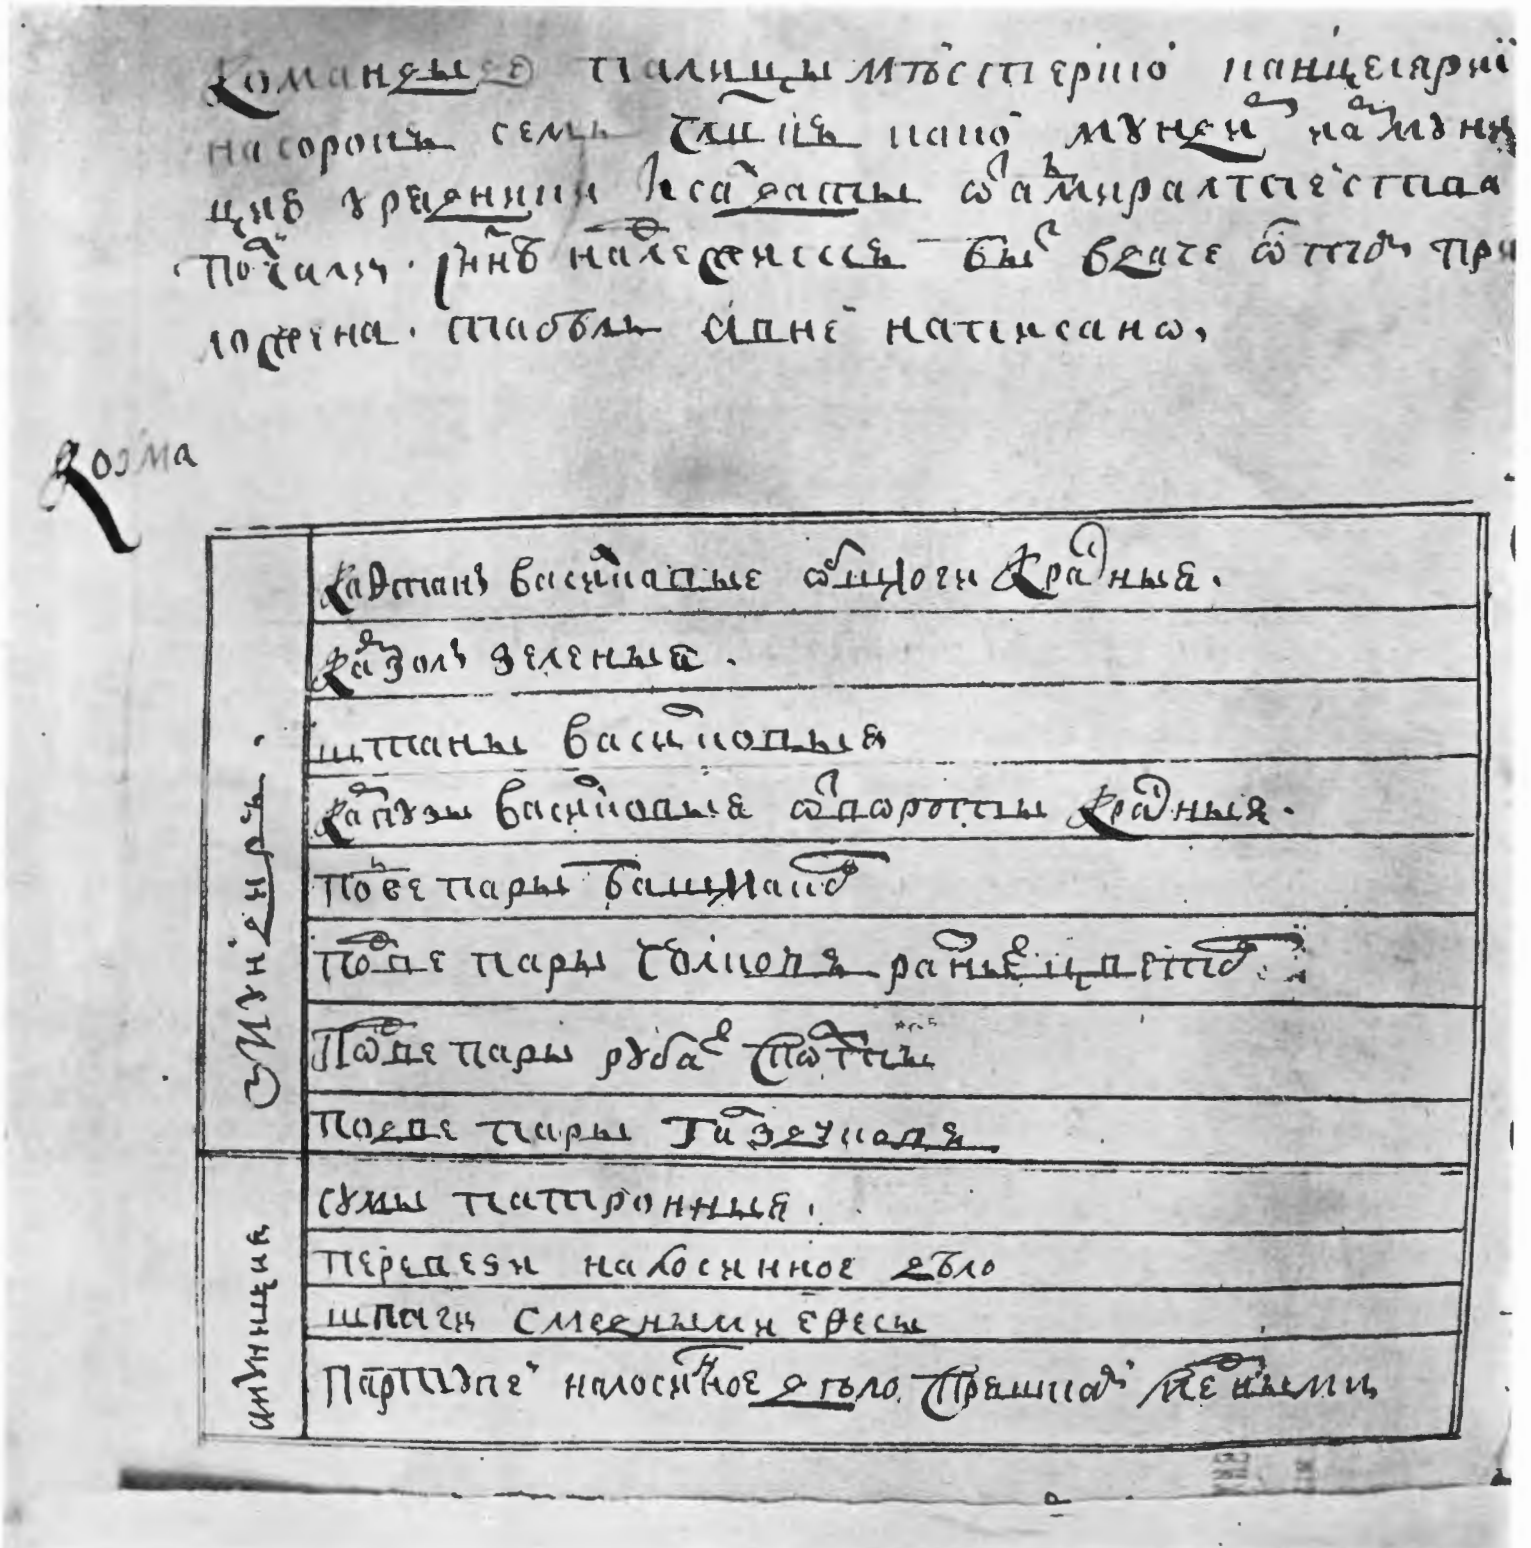 Командыее палицымѣстерию канцеляриї
насорокъ семь члвкъ како мундиⷬ҇ на муни
цию урядники исалдаты ѿ адмиралтѣства
получали имъ надлежиссь быⷧ҇ вдаче ѿ томъ при
ложена табель аднеⷨ написано
Козма
Мундиръ
Кафтанъ васиⷧ҇ковые ѿшлоги Краⷭ҇ныя
Каⷨзолъ зеленыя
штаны васиⷧ҇ковыя
Каⷬ҇тузы васиⷧ҇ковыя ѿвороты Краⷭ҇ныя
подве пары башмаковъ
подве пары чюлковъ разныⷯ цветовъ
Подве пары рубаⷯ спорты
подве пары галздуковъ
амуниция
сумы патронныя
перевези налосинное дѣло
шпаги смедными ефесы
Партупеи налосинное дѣло спряшками медными